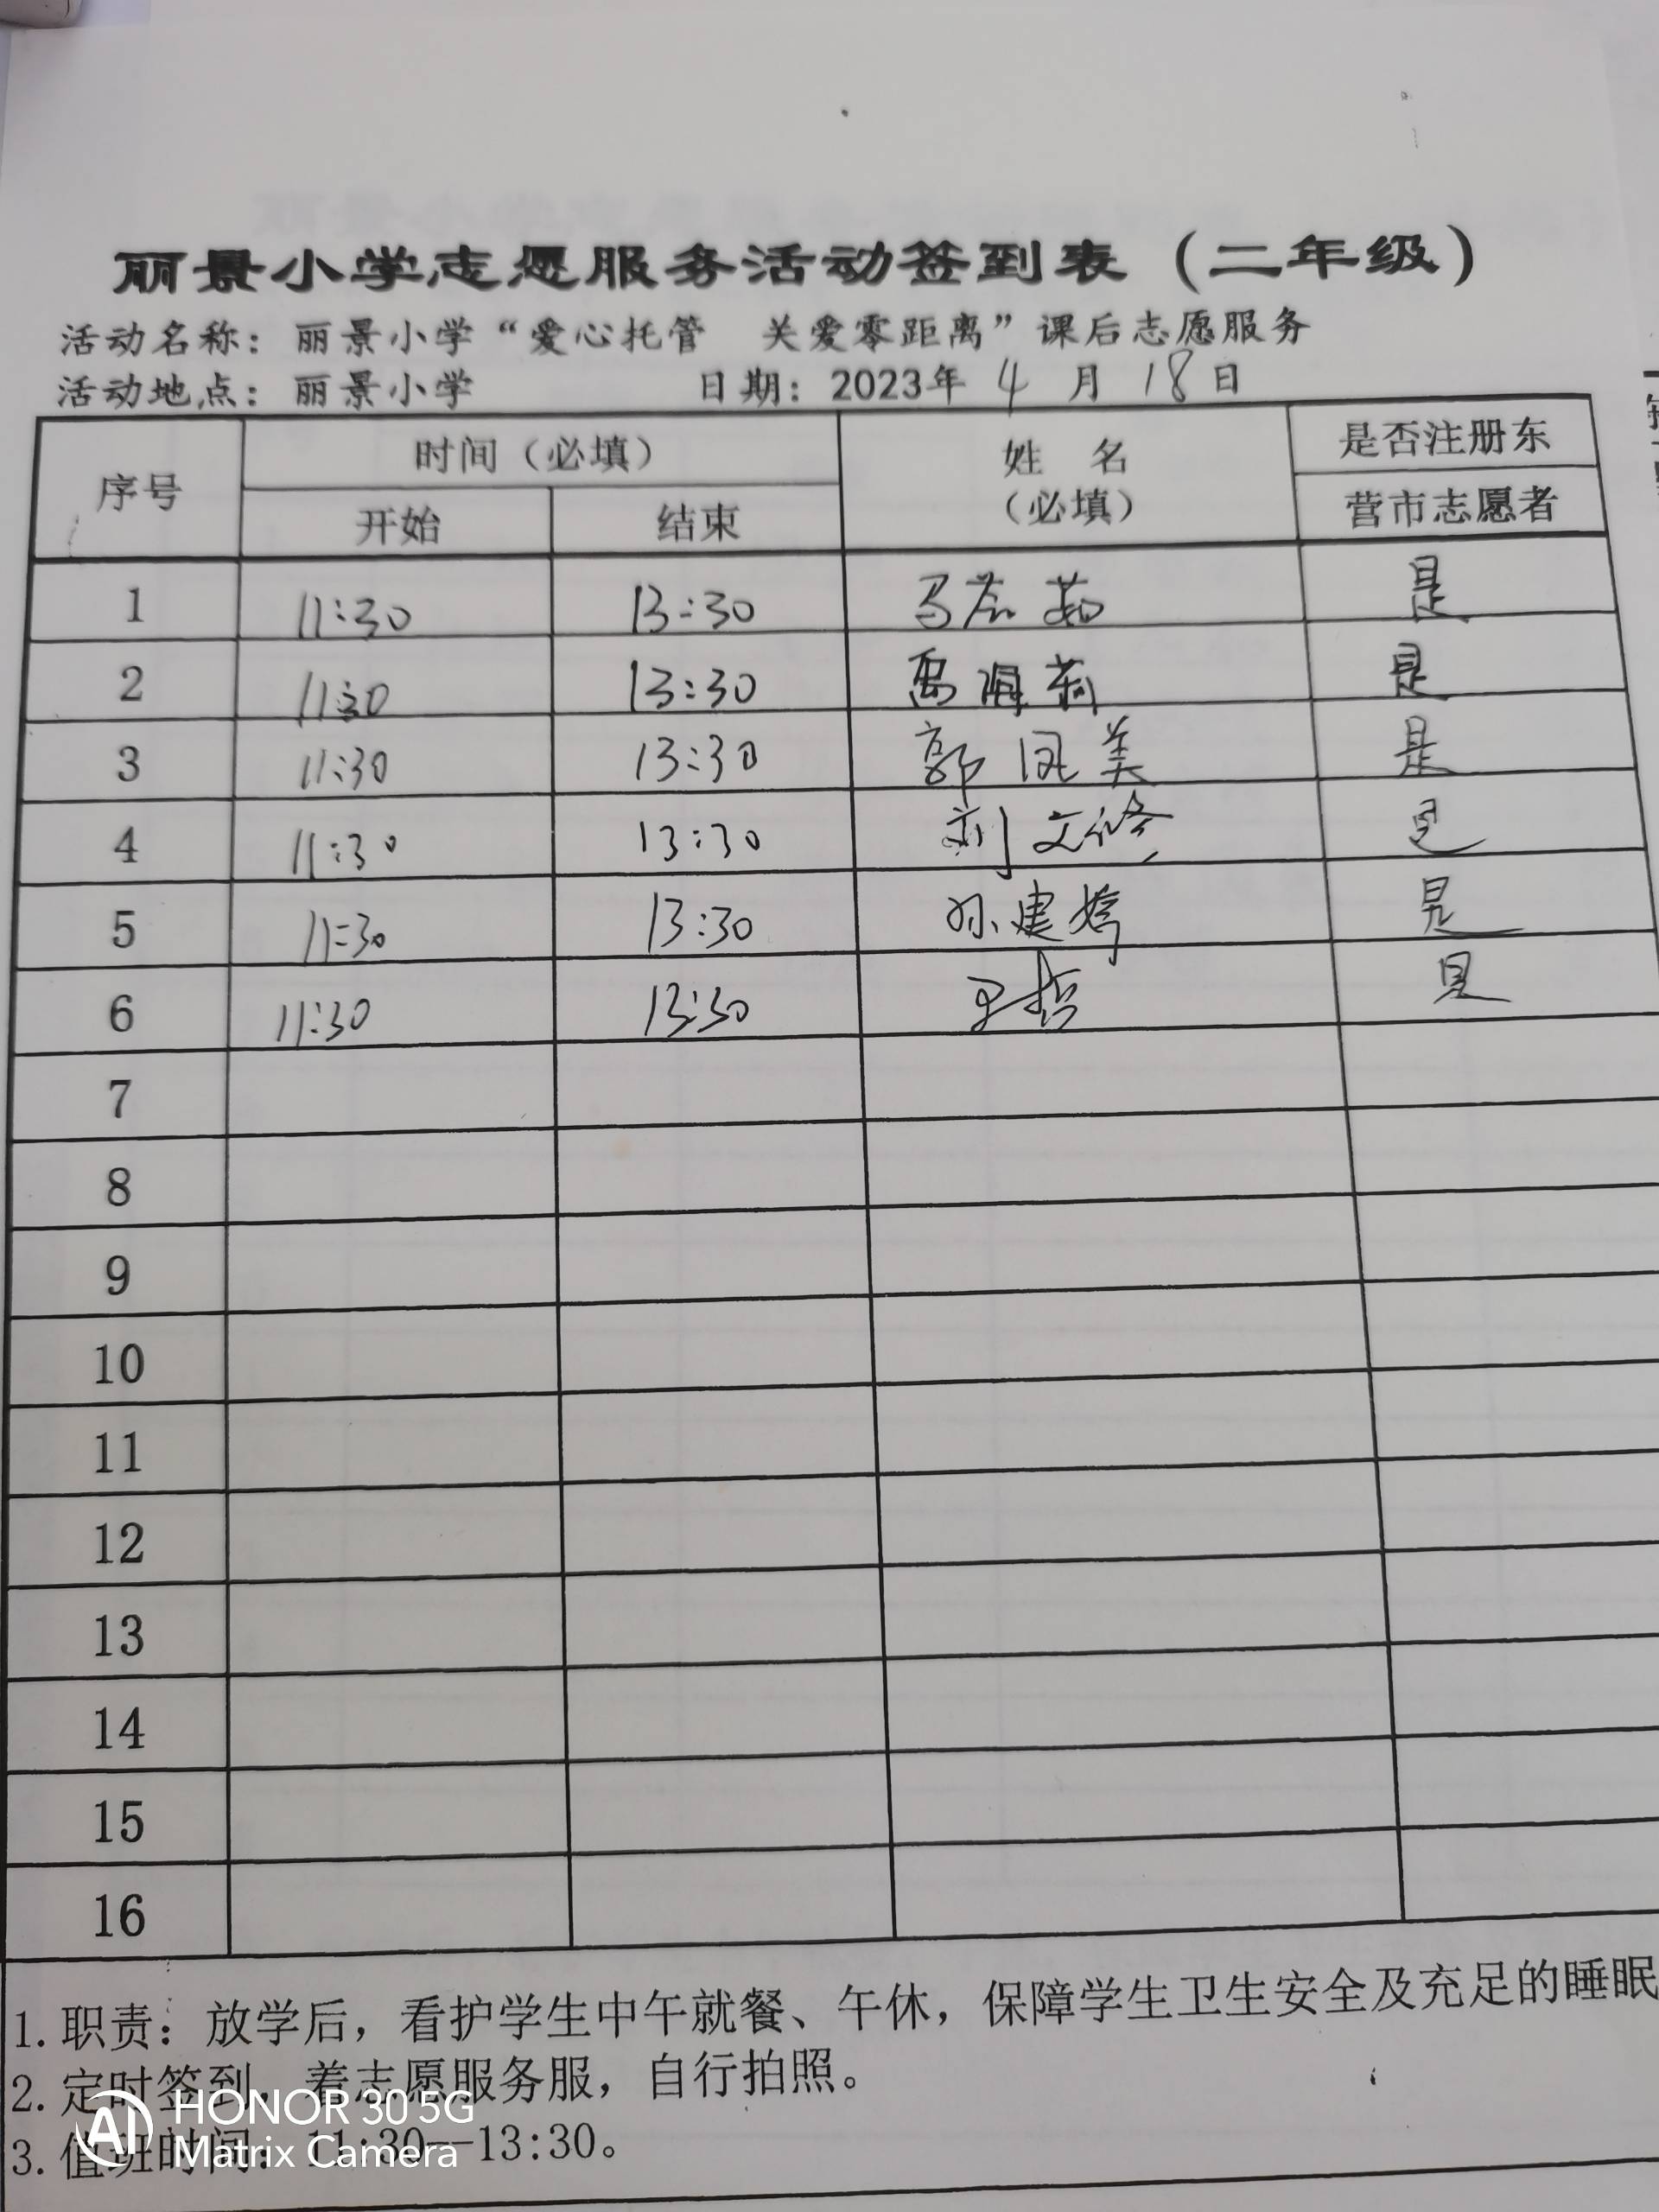 丽景小学志愿服务活动签到表（二年级）
活动名称：丽景小学“爱心托管 关爱零距离”课后志愿服务
活动地点：丽景小学 日期：2023年 4 月 18 日
序号 时间（必填） 姓 名 是否注册东
开始 结束 （必填） 营市志愿者
1 11:30 13:30 马 茹 是
2 11:30 13:30 海莉 是
3 11:30 13:30 郭凤美 是
4 11:30 13:30 刘文修 是
5 11:30 13:30 孙建嫦 是
6 11:30 13:30 王哲 是
7
8
9
10
11
12
13
14
15
16
1.职责：放学后，看护学生中午就餐、午休，保障学生卫生安全及充足的睡眠
2.定时签到，着志愿服务服，自行拍照。
3.值班时间：11:30—13:30。
AI HONOR 30 5G
Matrix Camera